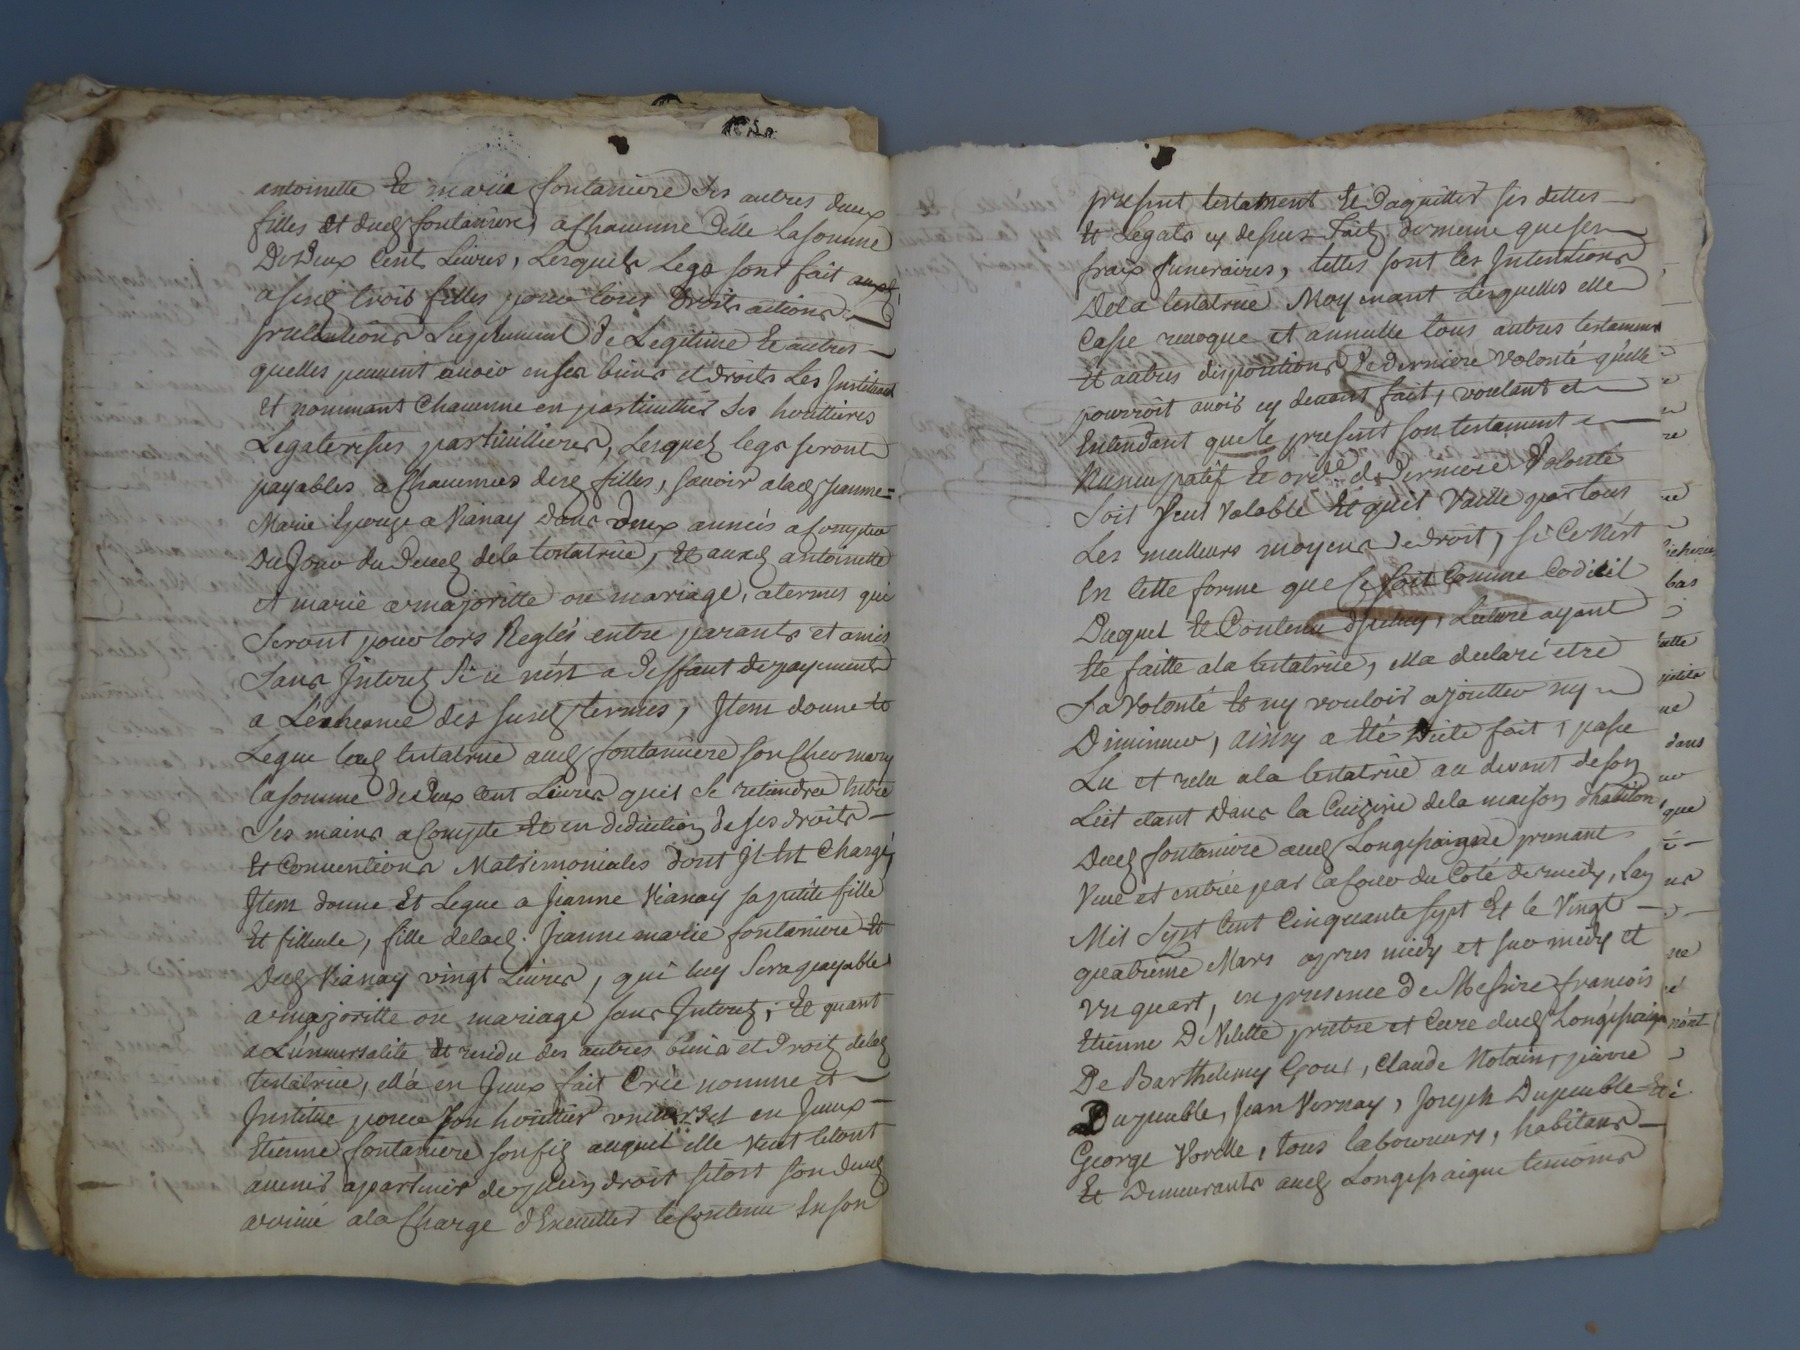 antoinette Et maria fontaniere Ses autres deux
filles Et dud fontaniere, a Chacunne d'elle La somme
De Deux Cent Livres, Lesquels Lega sont fait auxd
a ses trois filles pour tous Droits actions
pretentions Suplement De Legitime Et autres
quelles peuvent avoir en ses biens et droits Les Instituant
Et nommant Chacunne en particullier Ses heritieres
Legateresses particullieres, Lesquels legs seront
payables a Chacunnes desd filles, savoir a lad Jeanne =
Marie Epouze a Vianay Dans deux années a Compter
Du Jour du Deced de la testatrice, Et auxd antoinette
Et marie a majoritte ou mariage, a termes qui
Seront pour lors Reglés entre parants et amis
Sans Interet Si ce n'est a deffaut de payements
a L'echeance des susd termes, Item donne Et
Legue lad testatrice aud fontaniere son Cher mary
la somme de Deux Cent Livres quil Se retiendra Entre
Ses mains a Compte Et en deduction de ses droits
Et Conventions Matrimoniales dont Il Est Chargé,
Item donne Et Legue a Jeanne Vianay sa petite fille
Et filleule, fille de lad. Jeanne marie fontaniere Et
Dud Vianay vingt Livres, qui luy Sera payable
a majoritte ou mariage sans Interet; Et quant
a L'universalité Et residu des autres biens et Droit de lad
testatrice, ella en Iceux fait Crée nomme et
Institue pour Son heritier universel en Iceux
Etienne fontaniere son fils auquel elle veut le tout
avenir appartenir de plein droit sitost son deced
arrivé a la Charge d'Executter le Contenu En son
present testament Et D'aquitter ses dettes
Et Legats cy dessus faits de meme que ses
fraix funeraires, telles sont les Intentions
De la testatrice Moyenant Lesquelles elle
Casse revoque et annulle tous autres testaments
Et autres dispositions De derniere volonté quelle
pourroit avoir cy devant fait, voulant et
Entendant que le present son testament
Nuncupatif Et ordce de Derniere Volonté
Soit Seul Valable Et quil Vaille par tous
Les meilleurs moyens de droit, si Ce N'est
En Cette forme que Ce soit Comme Codicil
Duquel Et Contenu dicelluy, Lecture ayant
Eté faitte a la testatrice, ella declaré etre
Sa Volonté Et ny vouloir ajoutter ny
Diminuer, ainsy a eté fait, passé
Lu et relu a la testatrice au devant de son
Lict etant Dans la Cuisine de la maison d'habiton
Dud fontaniere aud Longessaigne prenant
Veue et entrée par la Cour du Coté de midy, Lan
Mil Sept Cent Cinquante sept Et le Vingt
quatrieme Mars apres midy et sur midy et
Un quart, en presence de Messire francois
Etienne prêtre et Curé dud Longessaigne
De Barthelemy Claude pierre
Dupeuble, Jean Vernay, Joseph Dupeuble Et
George tous laboureurs, habitans
Et Demeurants aud Longessaigne temoins